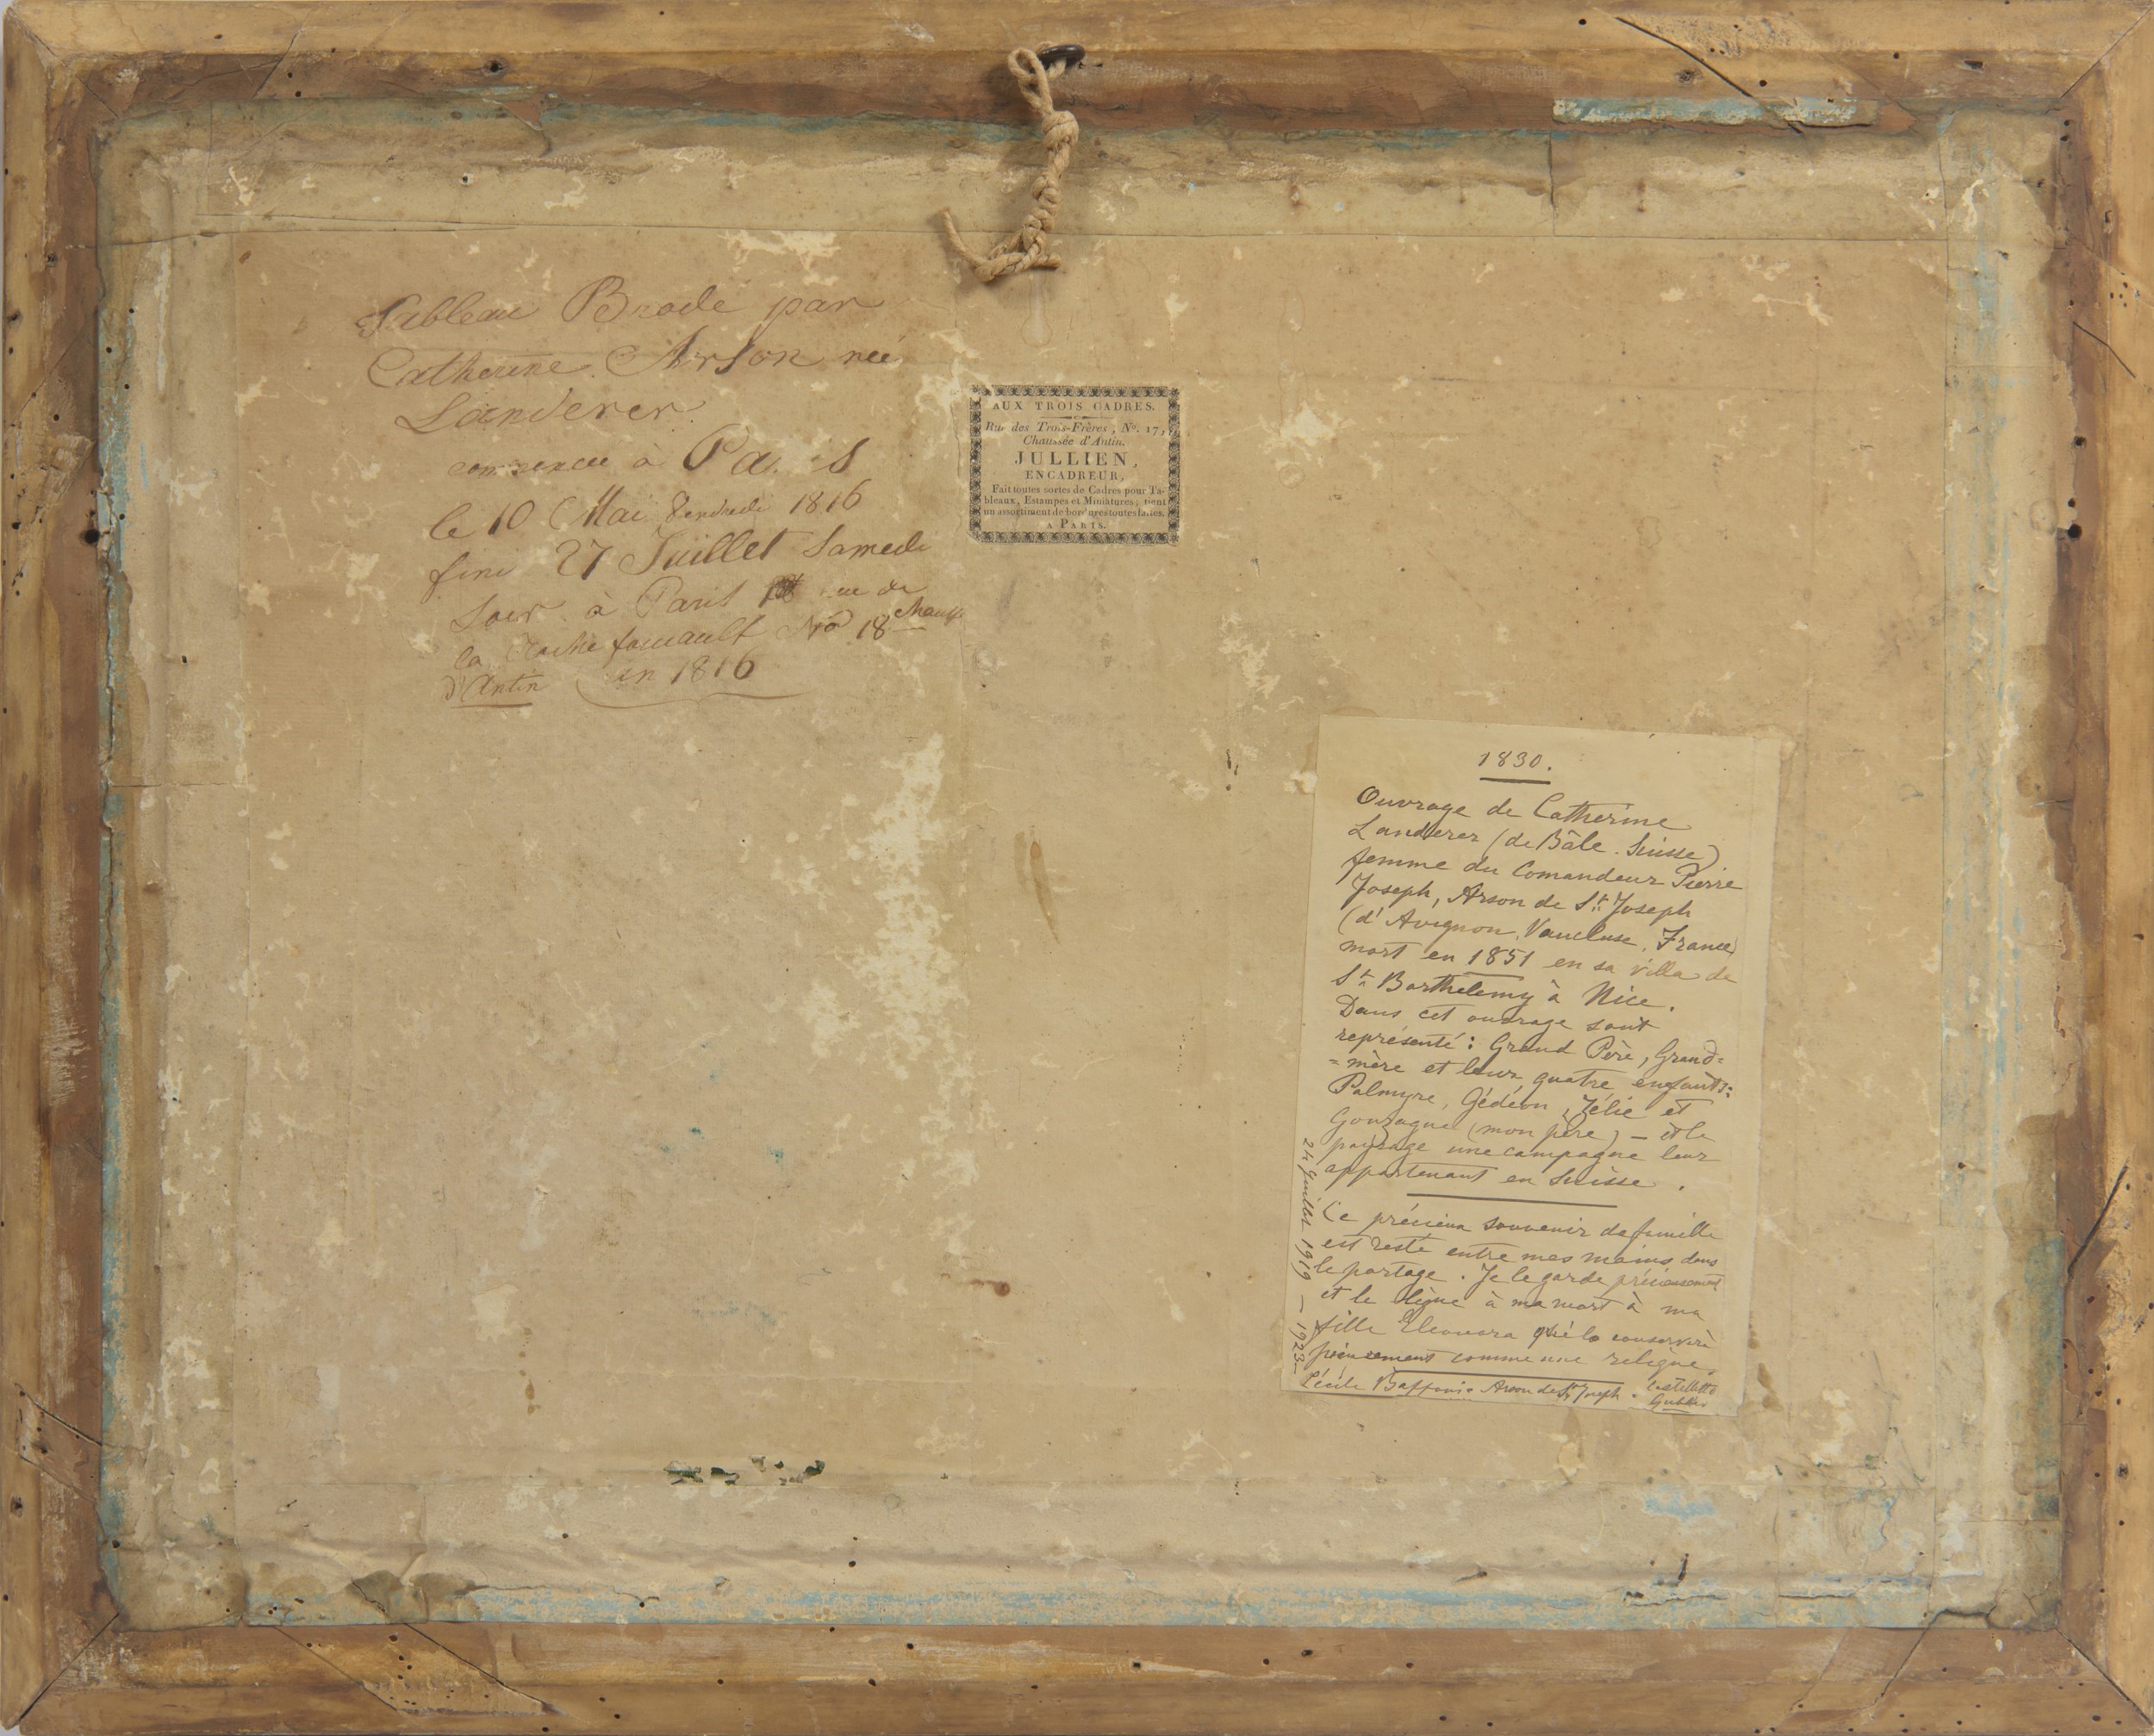 Tableau Brodé par
Catherine Arson neé
Landerer
commencee à Paris
le 10 Mai Vendredi 1816
fini 27 Juillet Samedi
Soir à Paris rue de
la Rochefoucault No 18 Chaussé
d'Antin en 1816
AUX TROIS CADRES.
Rue des Trois-Frères, No. 17,
Chaussée d'Antin.
JULLIEN,
ENCADREUR,
Fait toutes sortes de Cadres pour Ta-
bleaux, Estampes et Miniatures; tient
un assortiment de bordures toutes faites.
A PARIS.
1830.
Ouvrage de Catherine
Landerer (de Bâle. Suisse)
femme du Comandeur Pierre
Joseph, Arson de St. Joseph
(d'Avignon, Vaucluse, France)
mort en 1851 en sa villa de
St. Barthelemy à Nice.
Dans cet ouvrage sont
représenté: Grand Père, Grand=
=mère et leurs quatre enfants:
Palmyre, Gédéon, Zélie et
Gonzague (mon père) — et le
paysage une campagne leur
appartenant en Suisse.
Ce précieux souvenir de famille
est resté entre mes mains dans
le partage. Je le garde précieusement
et le lègue à ma mort à ma
fille Eleonora qui le conserverà
pieusement comme une relique.
Cécile Arson de St Joseph.
24 Juillet 1919 — 1923 —